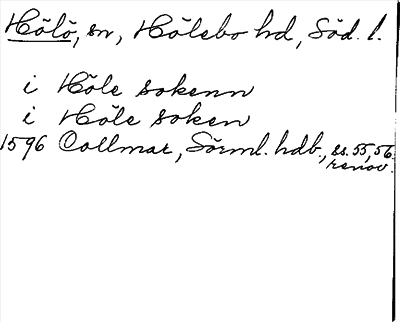 Hölö, sn, Hölebo hd, Söd. l.
i Höle sokenn
i Höle soken
1596 Collmar, Sörml. hdb., ss. 55, 56.
renov.